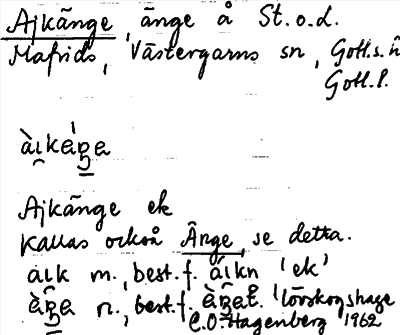 Ajkänge, änge å St. o. L.
Mafrids, Västergarns sn, Gotl. s. h
Gotl. l.
àıkäŋe
Ajkänge ek
Kallas också Änge, se detta.
aık m., best. f. áıkn 'ek'
äŋe n., best. f. äŋet. 'lövskogshage
C.O. Hagenberg 1962